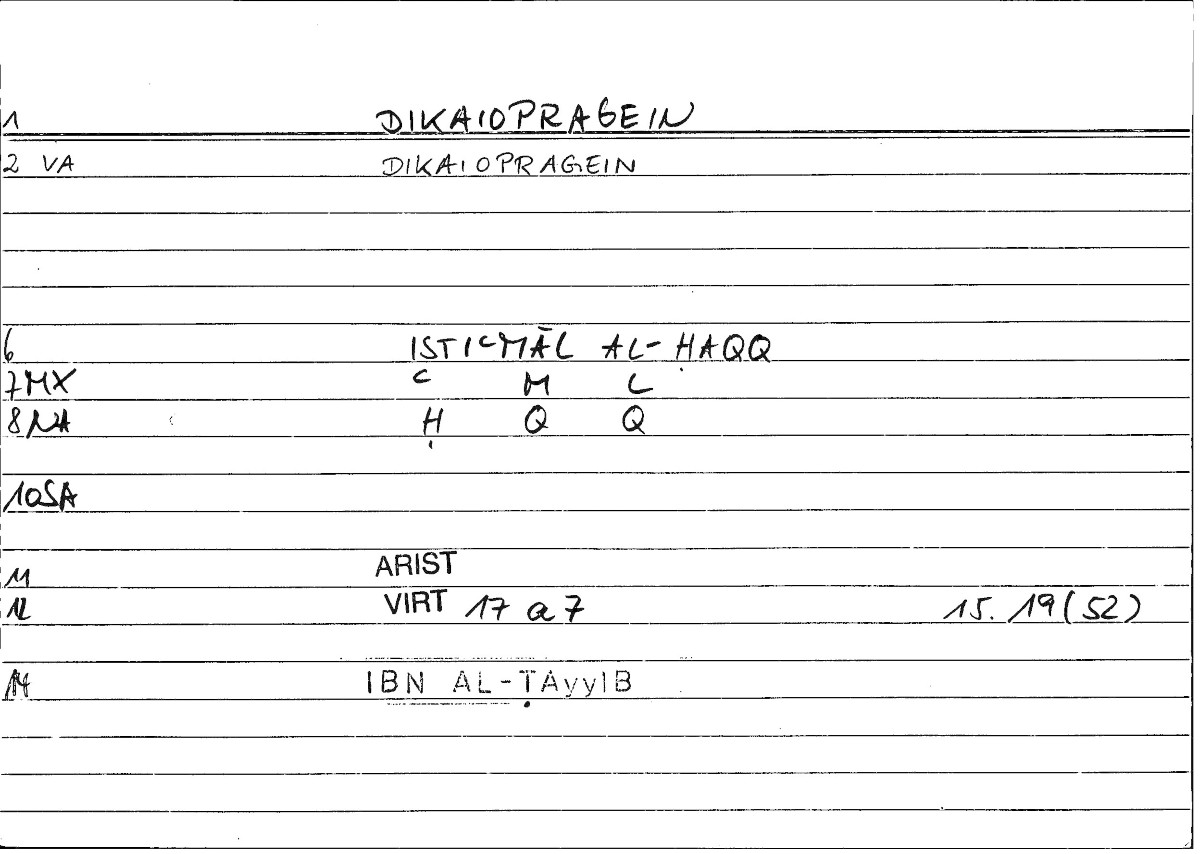 1 DIKAIOPRAGEIN
2 VA DIKAIOPRAGEIN
6 ISTIcMĀL AL-ḤAQQ
7MX c M L
8NA Ḥ Q Q
10SA
11 ARIST
12 VIRT 17 a 7 15. 19 (52)
14 IBN AL-ṬAyyIB